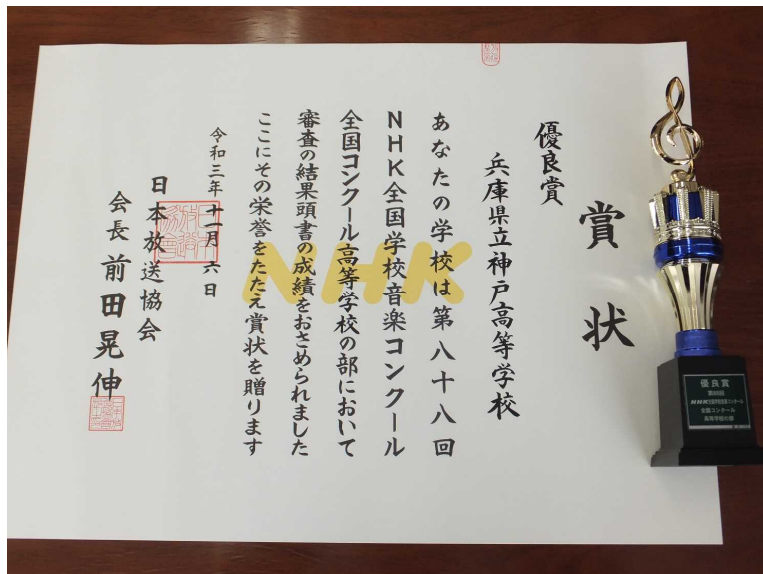 賞状
優良賞
兵庫県立神戸高等学校
あなたの学校は第八十八回
NHK全国学校音楽コンクール
全国コンクール高等学校の部において
審査の結果頭書の成績をおさめられました
ここにその栄誉をたたえ賞状を贈ります
令和三年十一月六日
日本放送協会
会長 前田晃伸
NHK
優良賞
第88回
NHK全国学校音楽コンクール
全国コンクール
高等学校の部